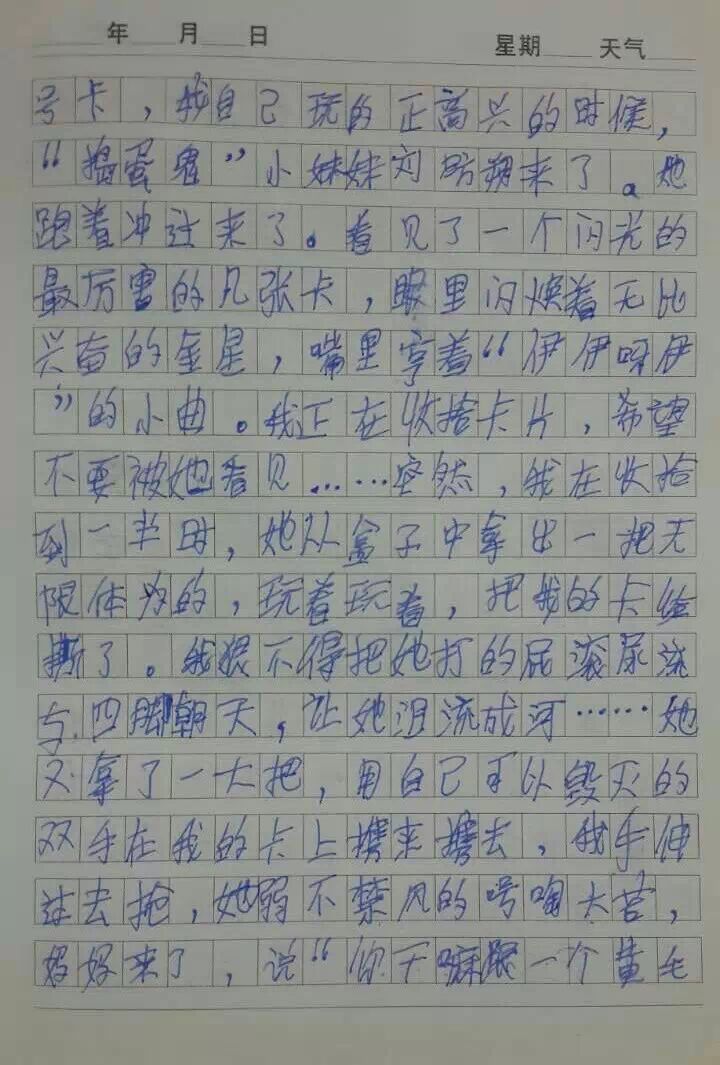 年 月 日 星期 天气
号卡，我自己玩的正高兴的时候，
“捣蛋鬼”小妹妹刘 来了。她
跑着冲过来了。看见了一个闪光的
最厉害的几张卡，眼里闪焕着无比
兴奋的金星，嘴里哼着“伊伊呀伊
”的小曲。我正在收拾卡片，希望
不要被她看见……突然，我在收拾
到一半时，她从盒子中拿出一把无
限体 的，玩着玩着，把我的卡给
撕了。我狠不得把她打的屁滚尿流
与四脚朝天，让她泪流成河……她
又拿了一大把，用自己可以毁灭的
双手在我的卡上携来携去，我手伸
过去抢，她弱不禁风的号啕大苦，
妈妈来了，说“你干嘛跟一个黄毛